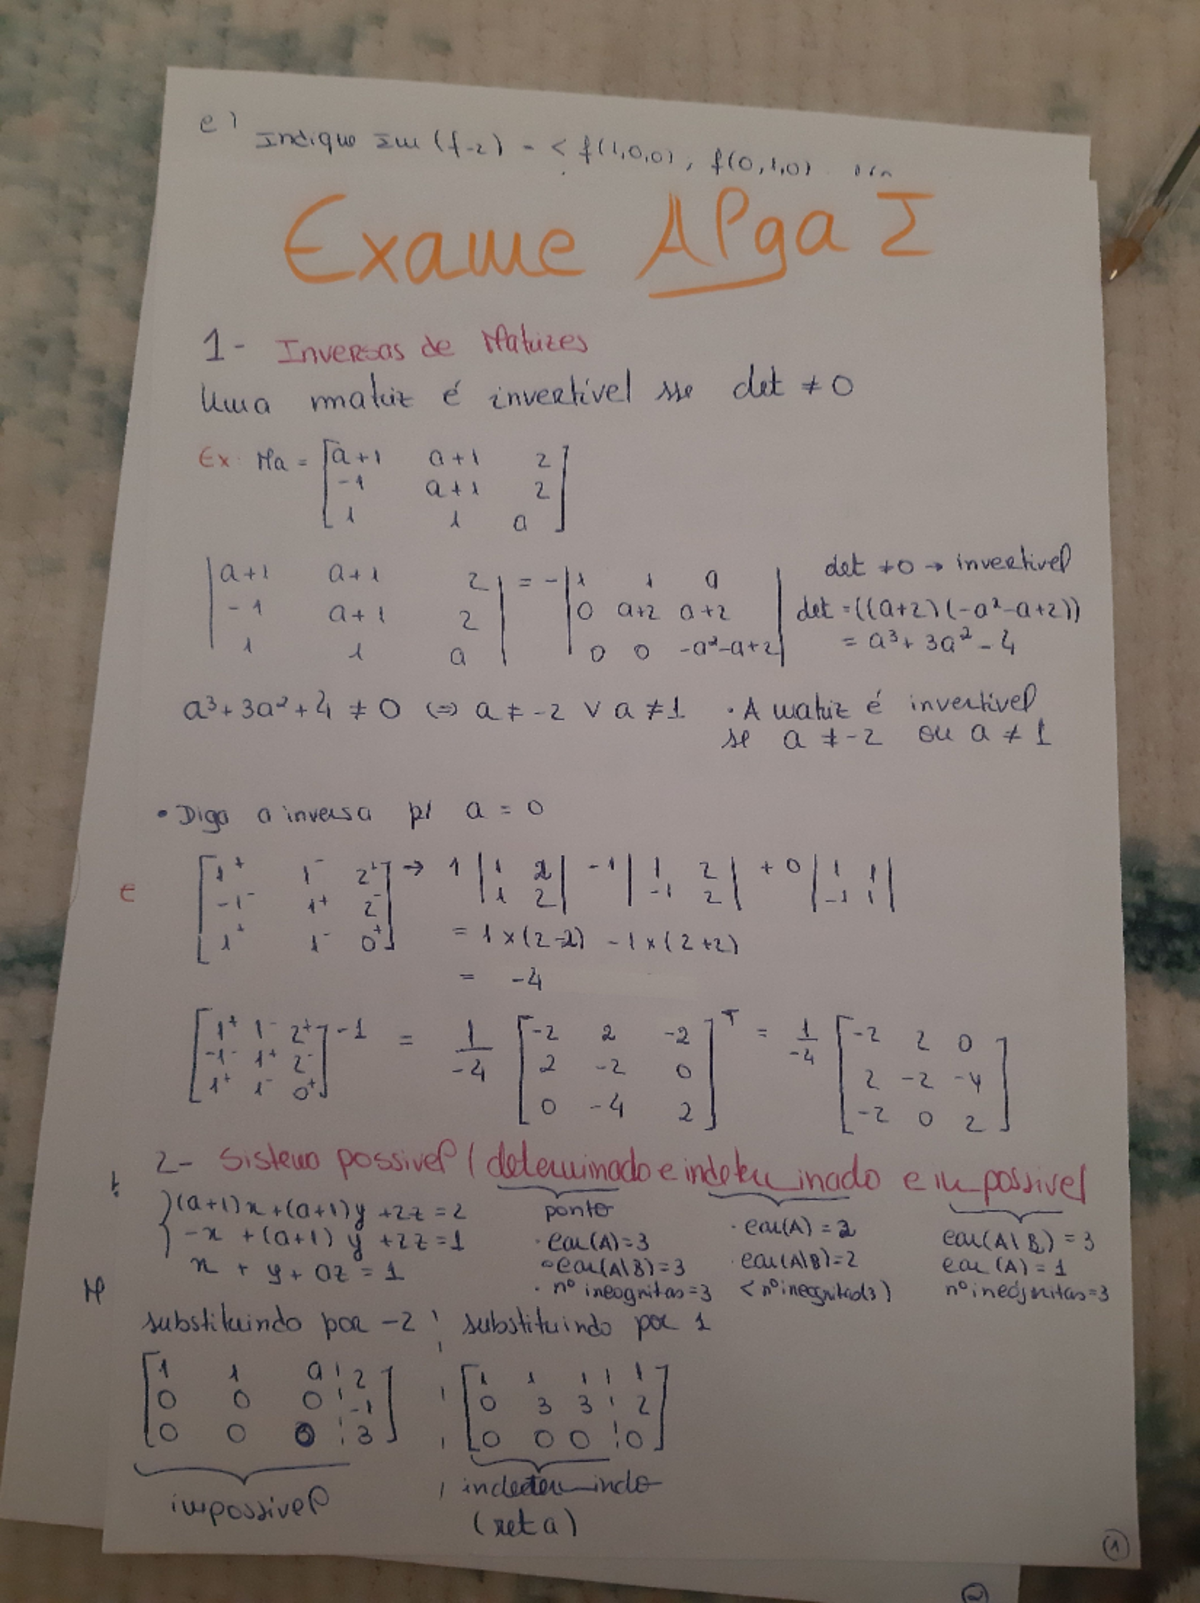 e) Indique Im (f-2) = < f(1,0,0), f(0,1,0)
Exame ALga I
1- Inversas de Matrizes
Uma matriz é invertível sse det ≠ 0
Ex: Ma = [a+1 a+1 2
-1 a+1 2
1 1 a]
|a+1 a+1 2
-1 a+1 2
1 1 a| = -|1 1 a
0 a+2 a+2
0 0 -a²-a+2|
det ≠0 → invertível
det = ((a+2)(-a²-a+2))
= a³+ 3a² - 4
a³+ 3a² + 4 ≠ 0 (=) a ≠ -2 ∨ a ≠ 1
• A matriz é invertível
se a ≠ -2 ou a ≠ 1
• Diga a inversa p/ a = 0
e
[1⁺ 1⁻ 2⁺
-1⁻ 1⁺ 2⁻
1⁺ 1⁻ 0⁺] → 1 |1 2
1 2| -1 |1 2
-1 2| + 0 |1 1
-1 1|
= 1 x (2-2) - 1 x (2+2)
= -4
[1⁺ 1⁻ 2⁺
-1⁻ 1⁺ 2⁻
1⁺ 1⁻ 0⁺]-1 = 1/-4 [-2 2 -2
2 -2 0
0 -4 2]T = 1/-4 [-2 2 0
2 -2 -4
-2 0 2]
2- Sistema possivel (determinado e indeterminado e impossivel
{(a+1)x+(a+1)y+2z=2
-x +(a+1) y +2z=1
x + y + az = 1
ponto
• car(A)=3
• car(A|B)=3
• nº incognitas=3
• car(A) = 2
• car(A|B)=2
< nº incognitas(3)
car(A|B) = 3
car (A) = 1
nº incógnitas=3
substituindo por -2
[1 1 a ¦ 2
0 0 0 ¦ -1
0 0 0 ¦ 3]
impossivel
substituindo por 1
[1 1 1 ¦ 1
0 3 3 ¦ 2
0 0 0 ¦ 0]
(reta)
1
2